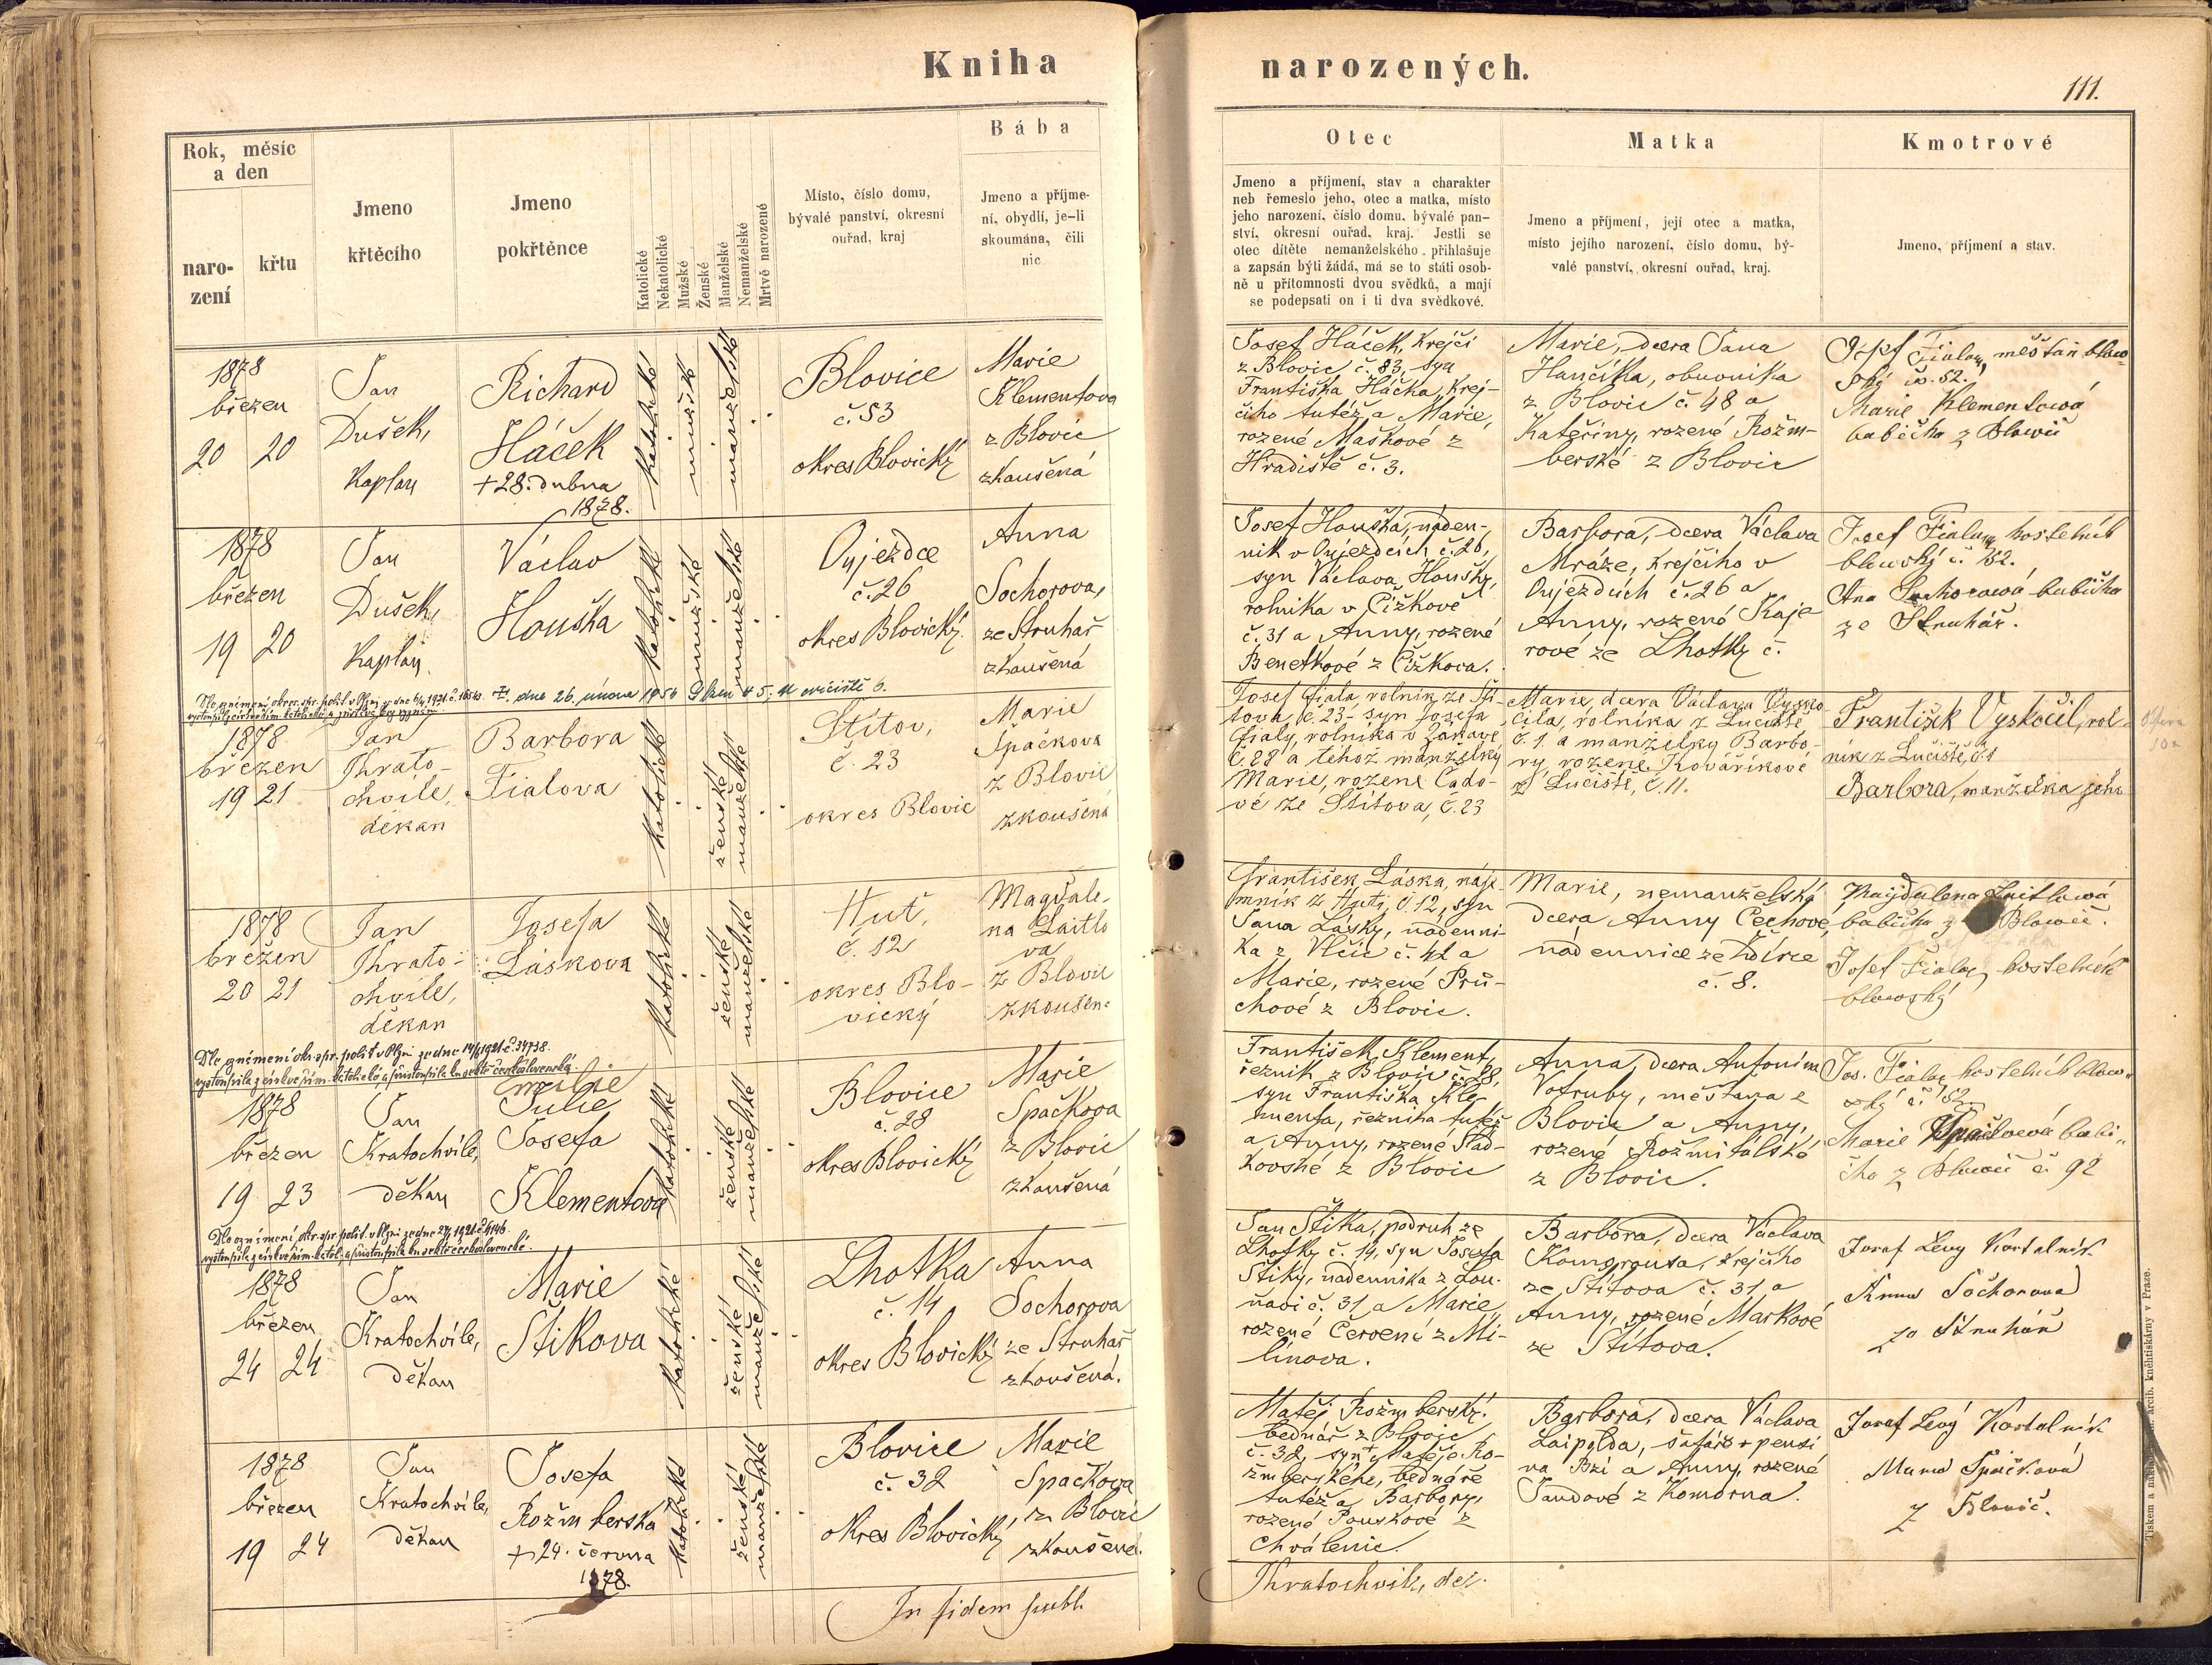 Kniha
narozených.
111.
Rok, měsíc
a den
naro-
zení
křtu
Jmeno
křtěcího
Jmeno
pokřtěnce
Katolické
Nekatolické
Mužské
Ženské
Manželské
Nemanželské
Mrtvě narozené
Místo, číslo domu,
bývalé panství, okresní
ouřad, kraj
Bába
Jmeno a příjme-
ní, obydlí, je-li
skoumána, čili
nic
Otec
Jmeno a příjmení, stav a charakter
neb řemeslo jeho, otec a matka, místo
jeho narození, číslo domu, bývalé pan-
ství, okresní ouřad, kraj. Jestli se
otec dítěte nemanželského přihlašuje
a zapsán býti žádá, má se to státi osob-
ně u přítomnosti dvou svědků, a mají
se podepsati on i ti dva svědkové.
Matka
Jmeno a příjmení, její otec a matka,
místo jejího narození, číslo domu, bý-
valé panství, okresní ouřad, kraj.
Kmotrové
Jmeno, příjmení a stav.
1878
březen
20 20
Jan
Dušek,
Kaplan
Richard
Háček
+ 28. dubna
1878.
katolické
mužské
manželské
Blovice
č. 53
okres Blovický
Marie
Klementova
z Blovic
zkoušená
Josef Háček, krejčí
z Blovic č. 83, syn
Františka Háčka, krej-
čího tutéž a Marie,
rozené Maškové z
Hradiště č. 3.
Marie, dcera Jana
Hančíka, obuvníka
z Blovic č. 48 a
Kateřiny, rozené Rožm-
berské z Blovic
Josef Fiala, měšťan blow-
ský čp. 52.
Marie Klementowá
babička z Blowic
1878
březen
19 20
Jan
Dušek,
Kaplan
Václav
Houška
katolické
mužské
manželské
Oujezdce
č. 26
okres Blovický
Anna
Sochorova,
ze Struhař
zkoušená
Josef Houška, náden-
ník v Oujezdcích č. 26,
syn Václava Houšky,
rolníka v Čížkově
č. 31 a Anny, rozené
Benetkové z Čížkova.
Barbora, dcera Václava
Mráze, krejčího v
Oujezdcích č. 26 a
Anny, rozené Kaje-
rové ze Lhotky č.
Josef Fiala, kostelník
blowský č. 52.
Ana Sochorawá babička
ze Struhář.
dne 26. února 1956
1878
březen
19 21
Jan
Khrato-
chvile,
děkan
Barbora
Fialova
katolické
ženské
manželské
Štítov,
č. 23
okres Blovic
Marie
Špačkova
z Blovic
zkoušená
Josef Fiala, rolník ze Ští-
tova, č. 23 - syn Josefa
Fialy, rolníka v
č. 28 a téhož manželky
Marie, rozené Čado-
vé ze Štítova, č. 23
Marie, dcera Václava Vysko-
čila, rolníka z Lučiště
č. 1. a manželky Barbo-
ry, rozené Kovaříkové
z Lučiště, č. 11.
František Vyskočil, rol-
ník z Lučiště, č. 1
Barbora, manželka jeho
1878
březen
20 21
Jan
Khrato-
chvile,
děkan
Josefa
Láskova
katolické
ženské
manželské
Huť,
č. 12
okres Blo-
vický
Magdale-
na Laitlo
va
z Blovic
zkoušená
František Láska, náje-
mník z Huti, č. 12, syn
Jana Lásky, nádenní-
ka z Vlčic č. 42 a
Marie, rozené Prů-
chové z Blovic.
Marie, nemanželská
dcera Anny Čechové,
nádennice ze Ždírce
č. 8.
Magdalena Laitlowá
babička z Blowic.
Josef Fiala, kostelník
blowský
Dle oznámení okr. spr. polit. v Plzni ze dne 14/6 1921 č. 34738.
vystoupila z církve řím. katolické, a přistoupila ku sektě československé.
1878
březen
19 23
Jan
Kratochvíle,
děkan
Emilie
Julie
Josefa
Klementova
katolické
ženské
manželské
Blovice
č. 28
okres Blovický
Marie
Špačkova
z Blovic
zkoušená
František Klement,
řezník z Blovic č. 28,
syn Františka Kle-
menta, řezníka tutéž
a Anny, rozené Slád-
kovské z Blovic
Anna, dcera Antonína
Votruby, měšťana z
Blovic a Anny,
rozené Rožmitálské
z Blovic.
Jos. Fiala, kostelník blow-
ský č. 52
Marie Špačkowá babi-
čka z Blowic č. 92
1878
březen
24 24
Jan
Kratochvíle,
děkan
Marie
Štikova
katolické
ženské
manželské
Lhotka
č. 14
okres Blovický
Anna
Sochorova
ze Struhař
zkoušená.
Jan Štika, podruh ze
Lhotky č. 14, syn Josefa
Štiky, nádenníka z Lou-
ňadí č. 31 a Marie,
rozené Červené z Mi-
línova.
Barbora, dcera Václava
Komorousa, krejčího
ze Štítova č. 31 a
Anny, rozené Markové
ze Štítova.
Josef Levý Kostelník
Anna Sochorová
ze Struhář
1878
březen
19 24
Jan
Kratochvíle,
děkan
Josefa
Rožmberska
+ 24. června
1878.
katolické
ženské
manželské
Blovice
č. 32
okres Blovický
Marie
Špačkova
z Blovic
zkoušená.
Matěj Rožmberský,
bednář z Blovic
č. 32, syn + Matěje Ro-
žmberského, bednáře
tutéž a Barbory,
rozené Pouskové z
Chválenic
Barbora, dcera Václava
Laipolda, šafáře v pensi
na Bzí a Anny, rozené
Jandové z Komorna.
Josef Levý Kostelník
Marie Špačková
z Blovic.
In fidem publ.
Khratochvile, děk.